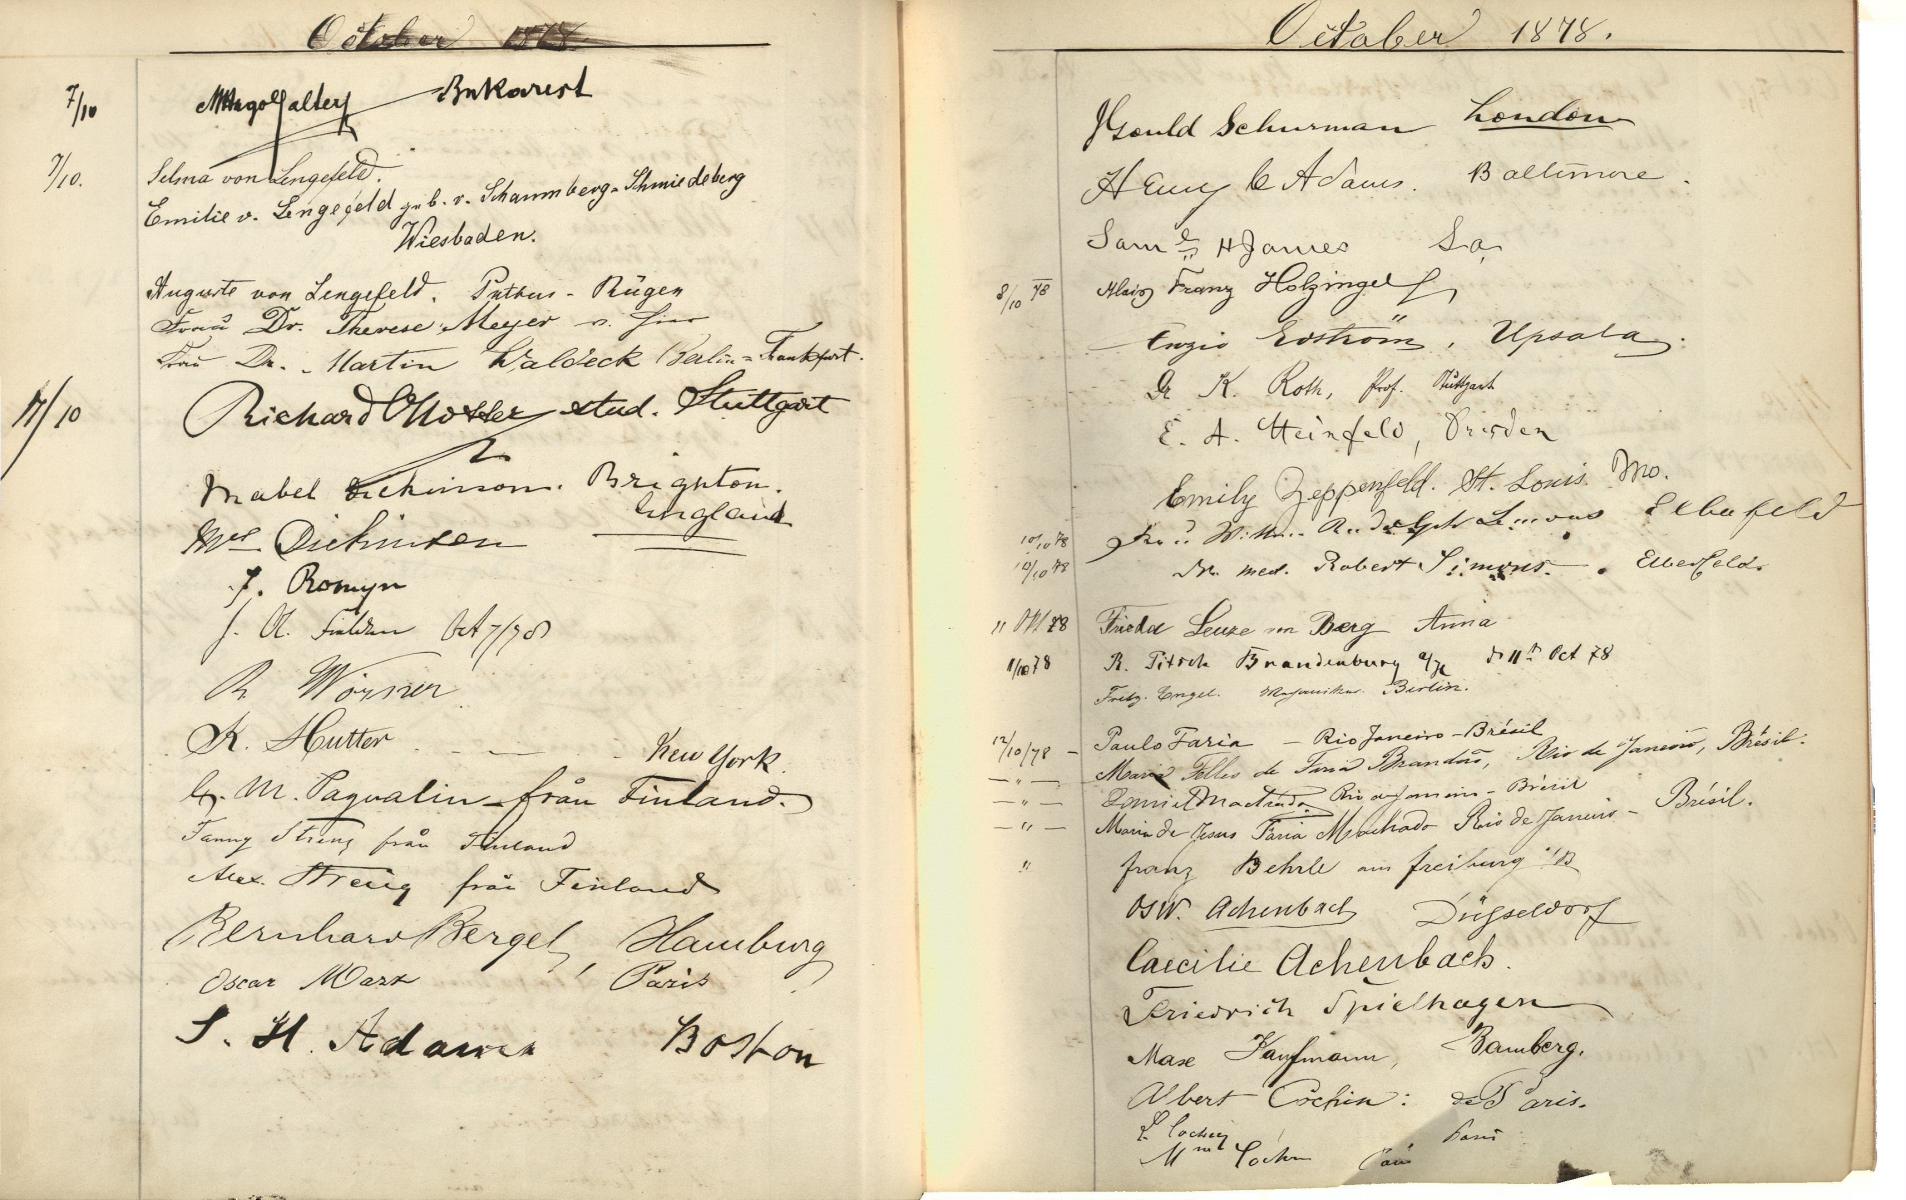 October 1878
7/10 Bukarest
7/10. Selma von Lengefeld.
Emilie v. Lengefeld geb. v. Schaumberg-Schmiedeberg
Wiesbaden.
Auguste von Lengefeld. Putbus - Rügen
Frau Dr. Therese Meyer v. hier
Frau Dr. Martin Waldeck Berlin = Frankfurt.
7/10 Richard stud. Stuttgart
Mabel Dickinson. Brighton.
England
Mrs Dickinson
J. Romyn
J. Oct 7/78
R. Wörner
K. Hutter - - New York.
G. M. Paqvalin från Finland.
Fanny Streng från Finland
Alex. Streng från Finland
Bernhard Bergel, Hamburg
Oscar Marx, Paris
S. H. Adams Boston
October 1878.
J Gould Schurman London
Henry C Adams. Baltimore.
Saml H James La,
8/10 78 Alois Franz Holzingel
Enzio Edström, Upsala.
Dr K. Roth, Prof. Stuttgart
E. A. Steinfeld, Dresden
Emily Zeppenfeld. St. Louis. Mo.
10/10 78 Frau Wilhm. Rudolph Simons Elberfeld
10/10 78 Dr. med. Robert Simons. Elberfeld.
11 Okt 78 Frieda Leuze von Berg Anna
11/10 78 R. Pitsch Brandenburg a/H d 11t Oct 78
Fritz Engel. Mechaniker. Berlin.
12/10/78 - Paulo Faria - Rio Janeiro - Brésil
— " — Maria Telles de Faria Brandão, Rio de Janeiro, Brésil.
— " — Daniel Machado Rio de Janeiro - Brésil
— " — Maria de Jesus Faria Machado Rio de Janeiro - Brésil.
" Franz Behrle aus Freiburg i/B
Osw. Achenbach Düsseldorf
Caecilie Achenbach.
Friedrich Spielhagen
Max Kaufmann, Bamberg.
Albert Cochin: de Paris.
L. Cochin Paris
Mme Cochin Paris